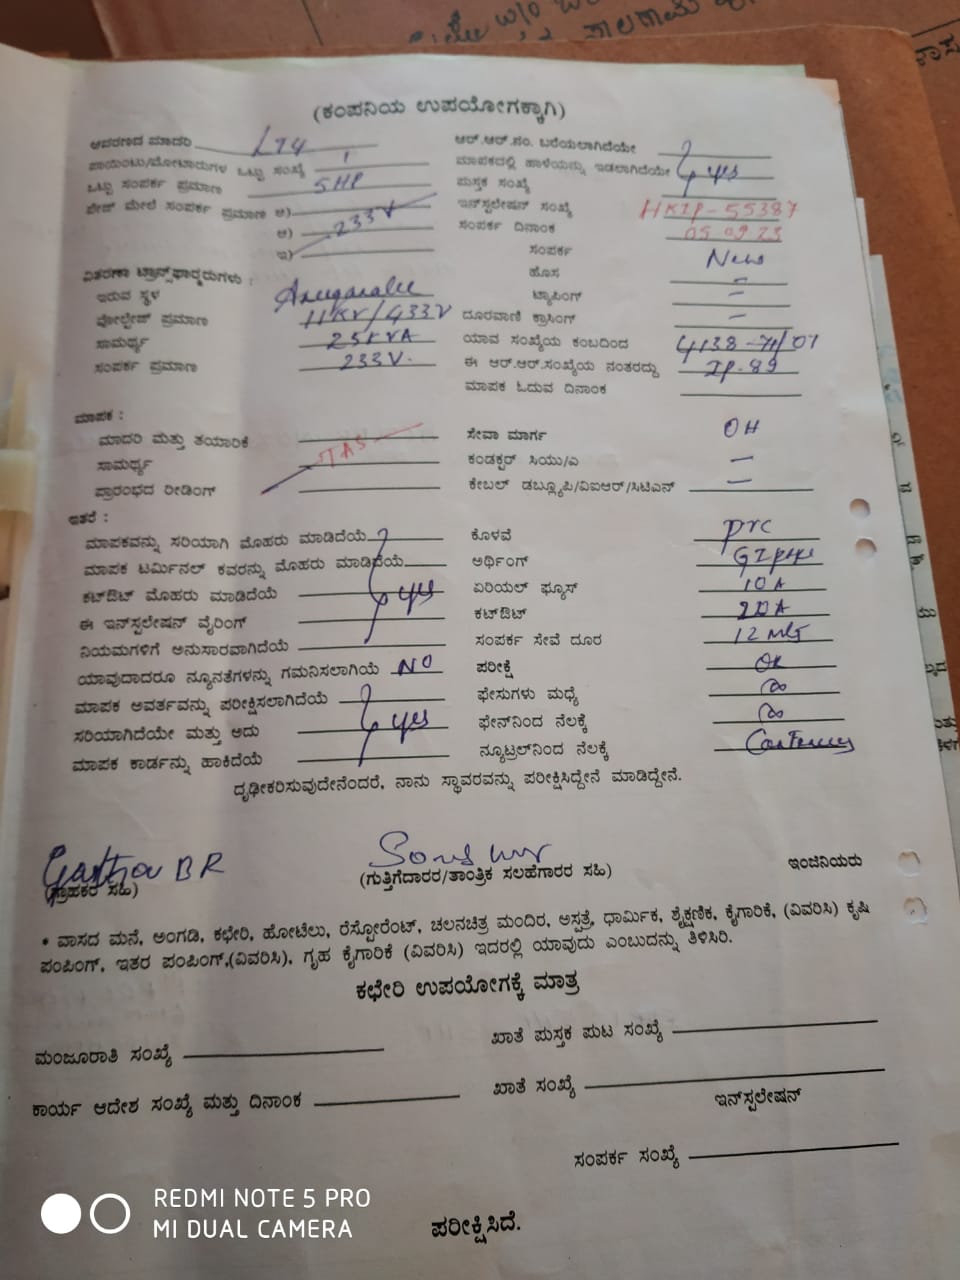 (ಕಂಪನಿಯ ಉಪಯೋಗಕ್ಕಾಗಿ)
ಆವರಣದ ಮಾದರಿ LT4
ಪಾಯಿಂಟು/ಮೋಟಾರುಗಳ ಒಟ್ಟು ಸಂಖ್ಯೆ 1
ಒಟ್ಟು ಸಂಪರ್ಕ ಪ್ರಮಾಣ 5HP
ಪೇಜ್ ಮೇಲೆ ಸಂಪರ್ಕ ಪ್ರಮಾಣ ಅ)
ಆ) 233V
ಇ)
ವಿತರಣಾ ಟ್ರಾನ್ಸ್‌ಫಾರ್ಮರುಗಳು :
ಇರುವ ಸ್ಥಳ
ವೋಲ್ಟೇಜ್ ಪ್ರಮಾಣ 11KV/433V
ಸಾಮರ್ಥ್ಯ 25KVA
ಸಂಪರ್ಕ ಪ್ರಮಾಣ 233V.
ಆರ್.ಆರ್.ನಂ. ಬರೆಯಲಾಗಿದೆಯೇ
ಮಾಪಕದಲ್ಲಿ ಹಾಳೆಯನ್ನು ಇಡಲಾಗಿದೆಯೇ yes
ಪುಸ್ತಕ ಸಂಖ್ಯೆ
ಇನ್‌ಸ್ಟಲೇಷನ್ ಸಂಖ್ಯೆ HKIP-55387
ಸಂಪರ್ಕ ದಿನಾಂಕ 05 09 23
ಸಂಪರ್ಕ New
ಹೊಸ –
ಟ್ಯಾಪಿಂಗ್ –
ದೂರವಾಣಿ ಕ್ರಾಸಿಂಗ್ –
ಯಾವ ಸಂಖ್ಯೆಯ ಕಂಬದಿಂದ
ಈ ಆರ್.ಆರ್.ಸಂಖ್ಯೆಯ ನಂತರದ್ದು IP-89
ಮಾಪಕ ಓದುವ ದಿನಾಂಕ
ಮಾಪಕ :
ಮಾದರಿ ಮತ್ತು ತಯಾರಿಕೆ
ಸಾಮರ್ಥ್ಯ
ಪ್ರಾರಂಭದ ರೀಡಿಂಗ್
ಸೇವಾ ಮಾರ್ಗ OH
ಕಂಡಕ್ಟರ್ ಸಿಯು/ಎ –
ಕೇಬಲ್ ಡಬ್ಲ್ಯೂಪಿ/ವಿಐಆರ್/ಸಿಟಿಎಸ್ –
ಇತರೆ :
ಮಾಪಕವನ್ನು ಸರಿಯಾಗಿ ಮೊಹರು ಮಾಡಿದೆಯೆ
ಮಾಪಕ ಟರ್ಮಿನಲ್ ಕವರನ್ನು ಮೊಹರು ಮಾಡಿದೆಯೆ
ಕಟ್‌ಔಟ್ ಮೊಹರು ಮಾಡಿದೆಯೆ yes
ಈ ಇನ್‌ಸ್ಟಲೇಷನ್ ವೈರಿಂಗ್
ನಿಯಮಗಳಿಗೆ ಅನುಸಾರವಾಗಿದೆಯೆ
ಯಾವುದಾದರೂ ನ್ಯೂನತೆಗಳನ್ನು ಗಮನಿಸಲಾಗಿಯೆ NO
ಮಾಪಕ ಅವರ್ತವನ್ನು ಪರೀಕ್ಷಿಸಲಾಗಿದೆಯೆ
ಸರಿಯಾಗಿದೆಯೇ ಮತ್ತು ಅದು yes
ಮಾಪಕ ಕಾರ್ಡನ್ನು ಹಾಕಿದೆಯೆ
ಕೊಳವೆ PVC
ಅರ್ಥಿಂಗ್ GI pipe
ಏರಿಯಲ್ ಫ್ಯೂಸ್ 10A
ಕಟ್‌ಔಟ್ 20A
ಸಂಪರ್ಕ ಸೇವೆ ದೂರ 12
ಪರೀಕ್ಷೆ OK
ಫೇಸುಗಳು ಮಧ್ಯೆ ∞
ಫೇಸ್‌ನಿಂದ ನೆಲಕ್ಕೆ ∞
ನ್ಯೂಟ್ರಲ್‌ನಿಂದ ನೆಲಕ್ಕೆ
ದೃಢೀಕರಿಸುವುದೇನೆಂದರೆ, ನಾನು ಸ್ಥಾವರವನ್ನು ಪರೀಕ್ಷಿಸಿದ್ದೇನೆ ಮಾಡಿದ್ದೇನೆ.
BR
(ಗ್ರಾಹಕರ ಸಹಿ)
(ಗುತ್ತಿಗೆದಾರರ/ತಾಂತ್ರಿಕ ಸಲಹೆಗಾರರ ಸಹಿ)
ಇಂಜಿನಿಯರು
• ವಾಸದ ಮನೆ, ಅಂಗಡಿ, ಕಛೇರಿ, ಹೋಟೆಲು, ರೆಸ್ಟೋರೆಂಟ್, ಚಲನಚಿತ್ರ ಮಂದಿರ, ಅಸ್ಪತ್ರೆ, ಧಾರ್ಮಿಕ, ಶೈಕ್ಷಣಿಕ, ಕೈಗಾರಿಕೆ, (ವಿವರಿಸಿ) ಕೃಷಿ
ಪಂಪಿಂಗ್, ಇತರ ಪಂಪಿಂಗ್,(ವಿವರಿಸಿ), ಗೃಹ ಕೈಗಾರಿಕೆ (ವಿವರಿಸಿ) ಇದರಲ್ಲಿ ಯಾವುದು ಎಂಬುದನ್ನು ತಿಳಿಸಿರಿ.
ಕಛೇರಿ ಉಪಯೋಗಕ್ಕೆ ಮಾತ್ರ
ಮಂಜೂರಾತಿ ಸಂಖ್ಯೆ
ಖಾತೆ ಪುಸ್ತಕ ಪುಟ ಸಂಖ್ಯೆ
ಕಾರ್ಯ ಆದೇಶ ಸಂಖ್ಯೆ ಮತ್ತು ದಿನಾಂಕ
ಖಾತೆ ಸಂಖ್ಯೆ
ಇನ್‌ಸ್ಟಲೇಷನ್
ಸಂಪರ್ಕ ಸಂಖ್ಯೆ
ಪರೀಕ್ಷಿಸಿದೆ.
REDMI NOTE 5 PRO
MI DUAL CAMERA